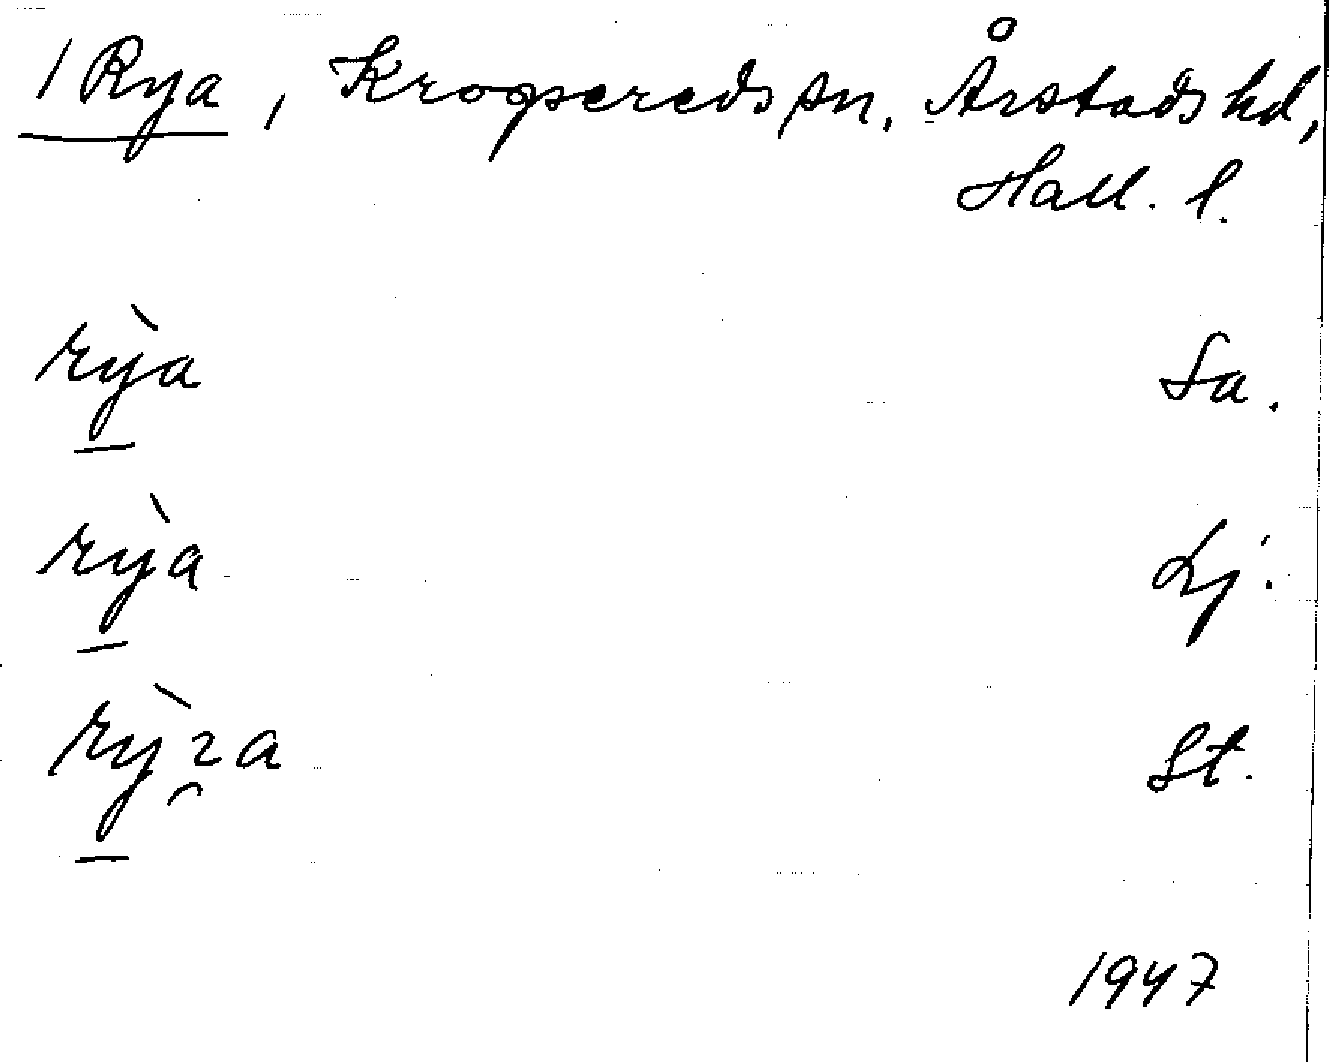 1 Rya, Kropsereds sn, Årstads hd,
Hall. l.
rỳa Sa.
rỳa Lj.
rỳɿa St.
1947